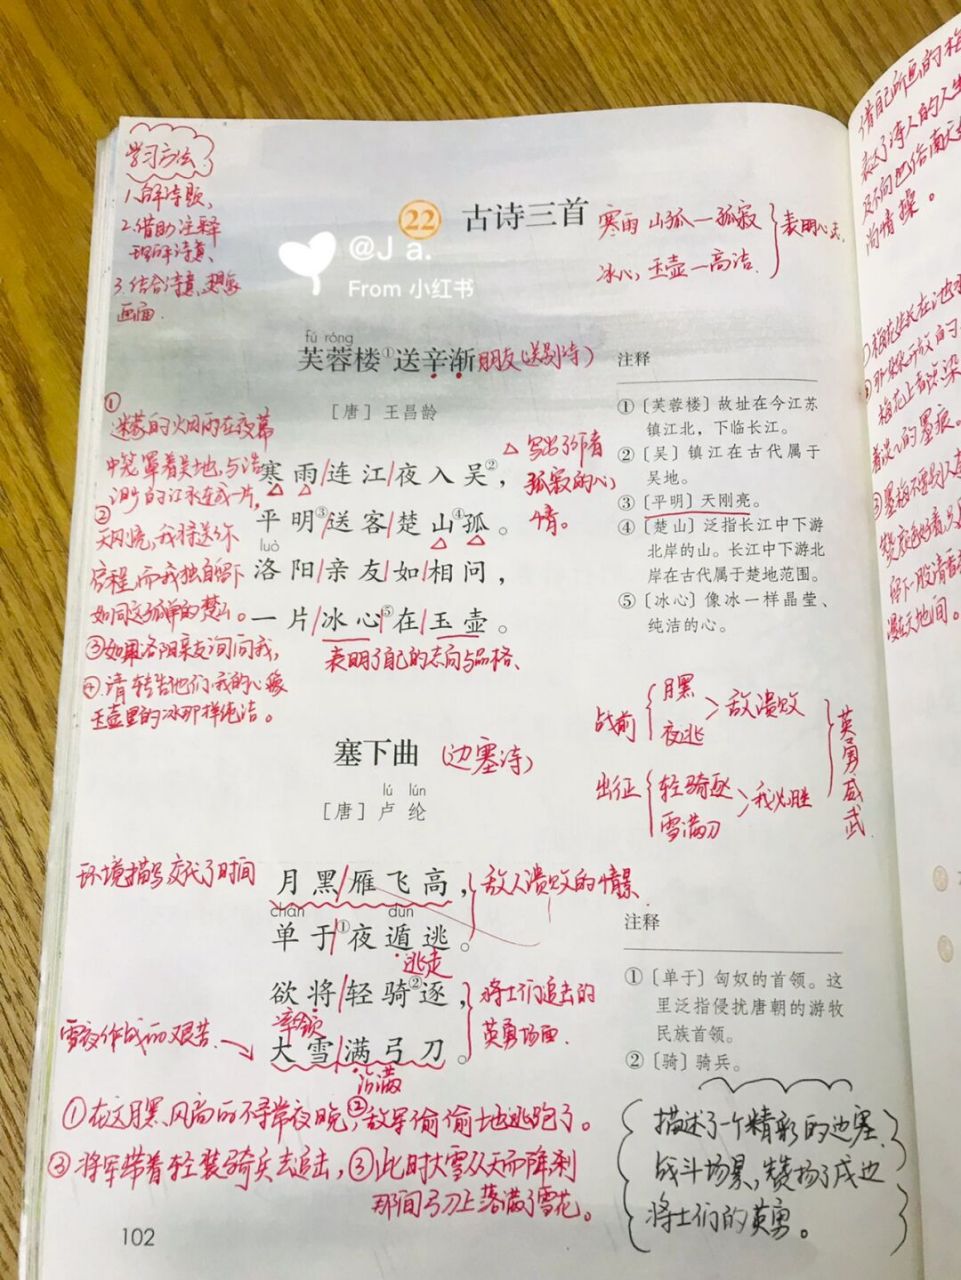 学习方法
1.解诗题、
2.借助注释
理解诗意、
3.结合诗意,想象
画面.
22 古诗三首
@J a.
From 小红书
寒雨 山孤—孤寂
冰心,玉壶—高洁.
表明心志.
fú róng
芙蓉楼①送辛渐
朋友(送别诗)
[唐] 王昌龄
寒雨/连江/夜入吴②,
平明③/送客/楚山④孤。
luò
洛阳/亲友/如相问,
一片/冰心⑤/在/玉壶。
△写出了作者
孤寂的心
情。
表明了自己的志向与品格、
①
迷蒙的烟雨在夜幕
中笼罩着吴地,与浩
渺的江水连成一片,
②
天刚亮,我将送你
启程,而我独自留下
如同这孤单的楚山。
③如果洛阳亲友询问我,
④.请转告他们,我的心像
玉壶里的冰那样纯洁。
注释
①〔芙蓉楼〕故址在今江苏
镇江北,下临长江。
②〔吴〕镇江在古代属于
吴地。
③〔平明〕天刚亮。
④〔楚山〕泛指长江中下游
北岸的山。长江中下游北
岸在古代属于楚地范围。
⑤〔冰心〕像冰一样晶莹、
纯洁的心。
塞下曲
(边塞诗)
lú lún
[唐] 卢纶
战前
月黑
夜逃
敌溃败
出征
轻骑逐
雪满刀
我必胜
英勇威武
环境描写交代了时间
月黑/雁飞高,
chán dùn
单于①/夜遁逃。
逃走
敌人溃败的情景
欲将/轻骑②逐,
率领
大雪/满弓刀。
沾满
将士们追击的
英勇场面.
雪夜作战的艰苦.
注释
①〔单于〕匈奴的首领。这
里泛指侵扰唐朝的游牧
民族首领。
②〔骑〕骑兵。
①在这月黑风高的不寻常夜晚,②敌军偷偷地逃跑了。
③将军带着轻装骑兵去追击,③此时大雪从天而降刹
那间弓刀上落满了雪花。
描述了一个精彩的边塞
战斗场景,赞扬了戍边
将士们的英勇。
102
借自己所画的梅
表达了诗人的人生
的情操。